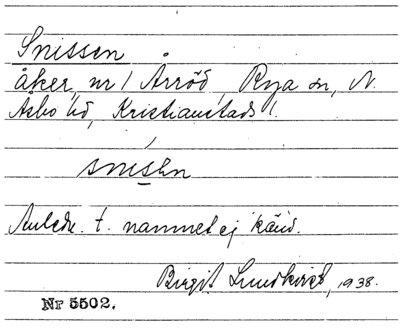 Snissen
åker, nr 1 Årröd, Rya sn, N.
Åsbo hd, Kristianstads l.
snisṇ
Anledn. t. namnet ej känd.
Birgit Lundkvist, 1938.
Nr 5502.